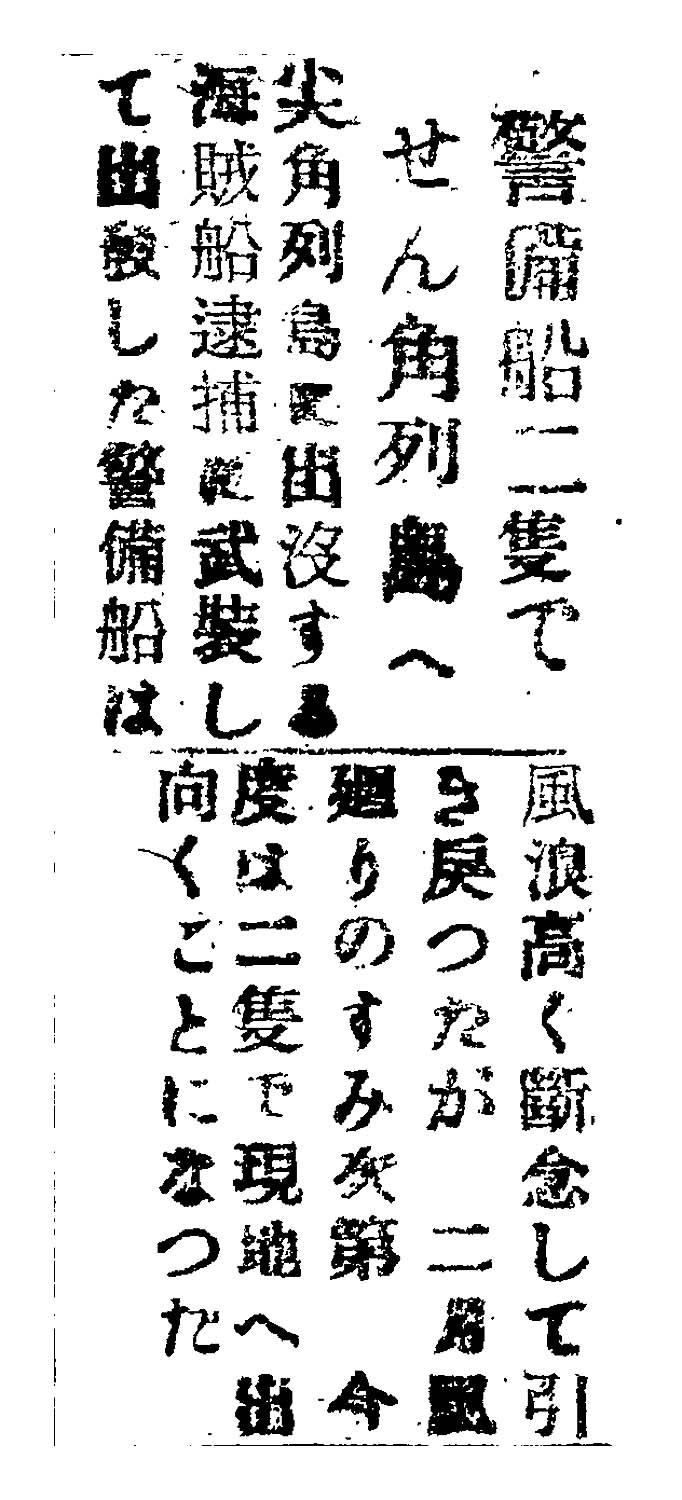 警備船二隻で
せん角列島へ
尖角列島に出没する
海賊船逮捕に武装し
て出發した警備船は
風浪高く斷念して引
き戻つたが 二月風
廻りのすみ次第 今
度は二隻で現地へ出
向くことになつた